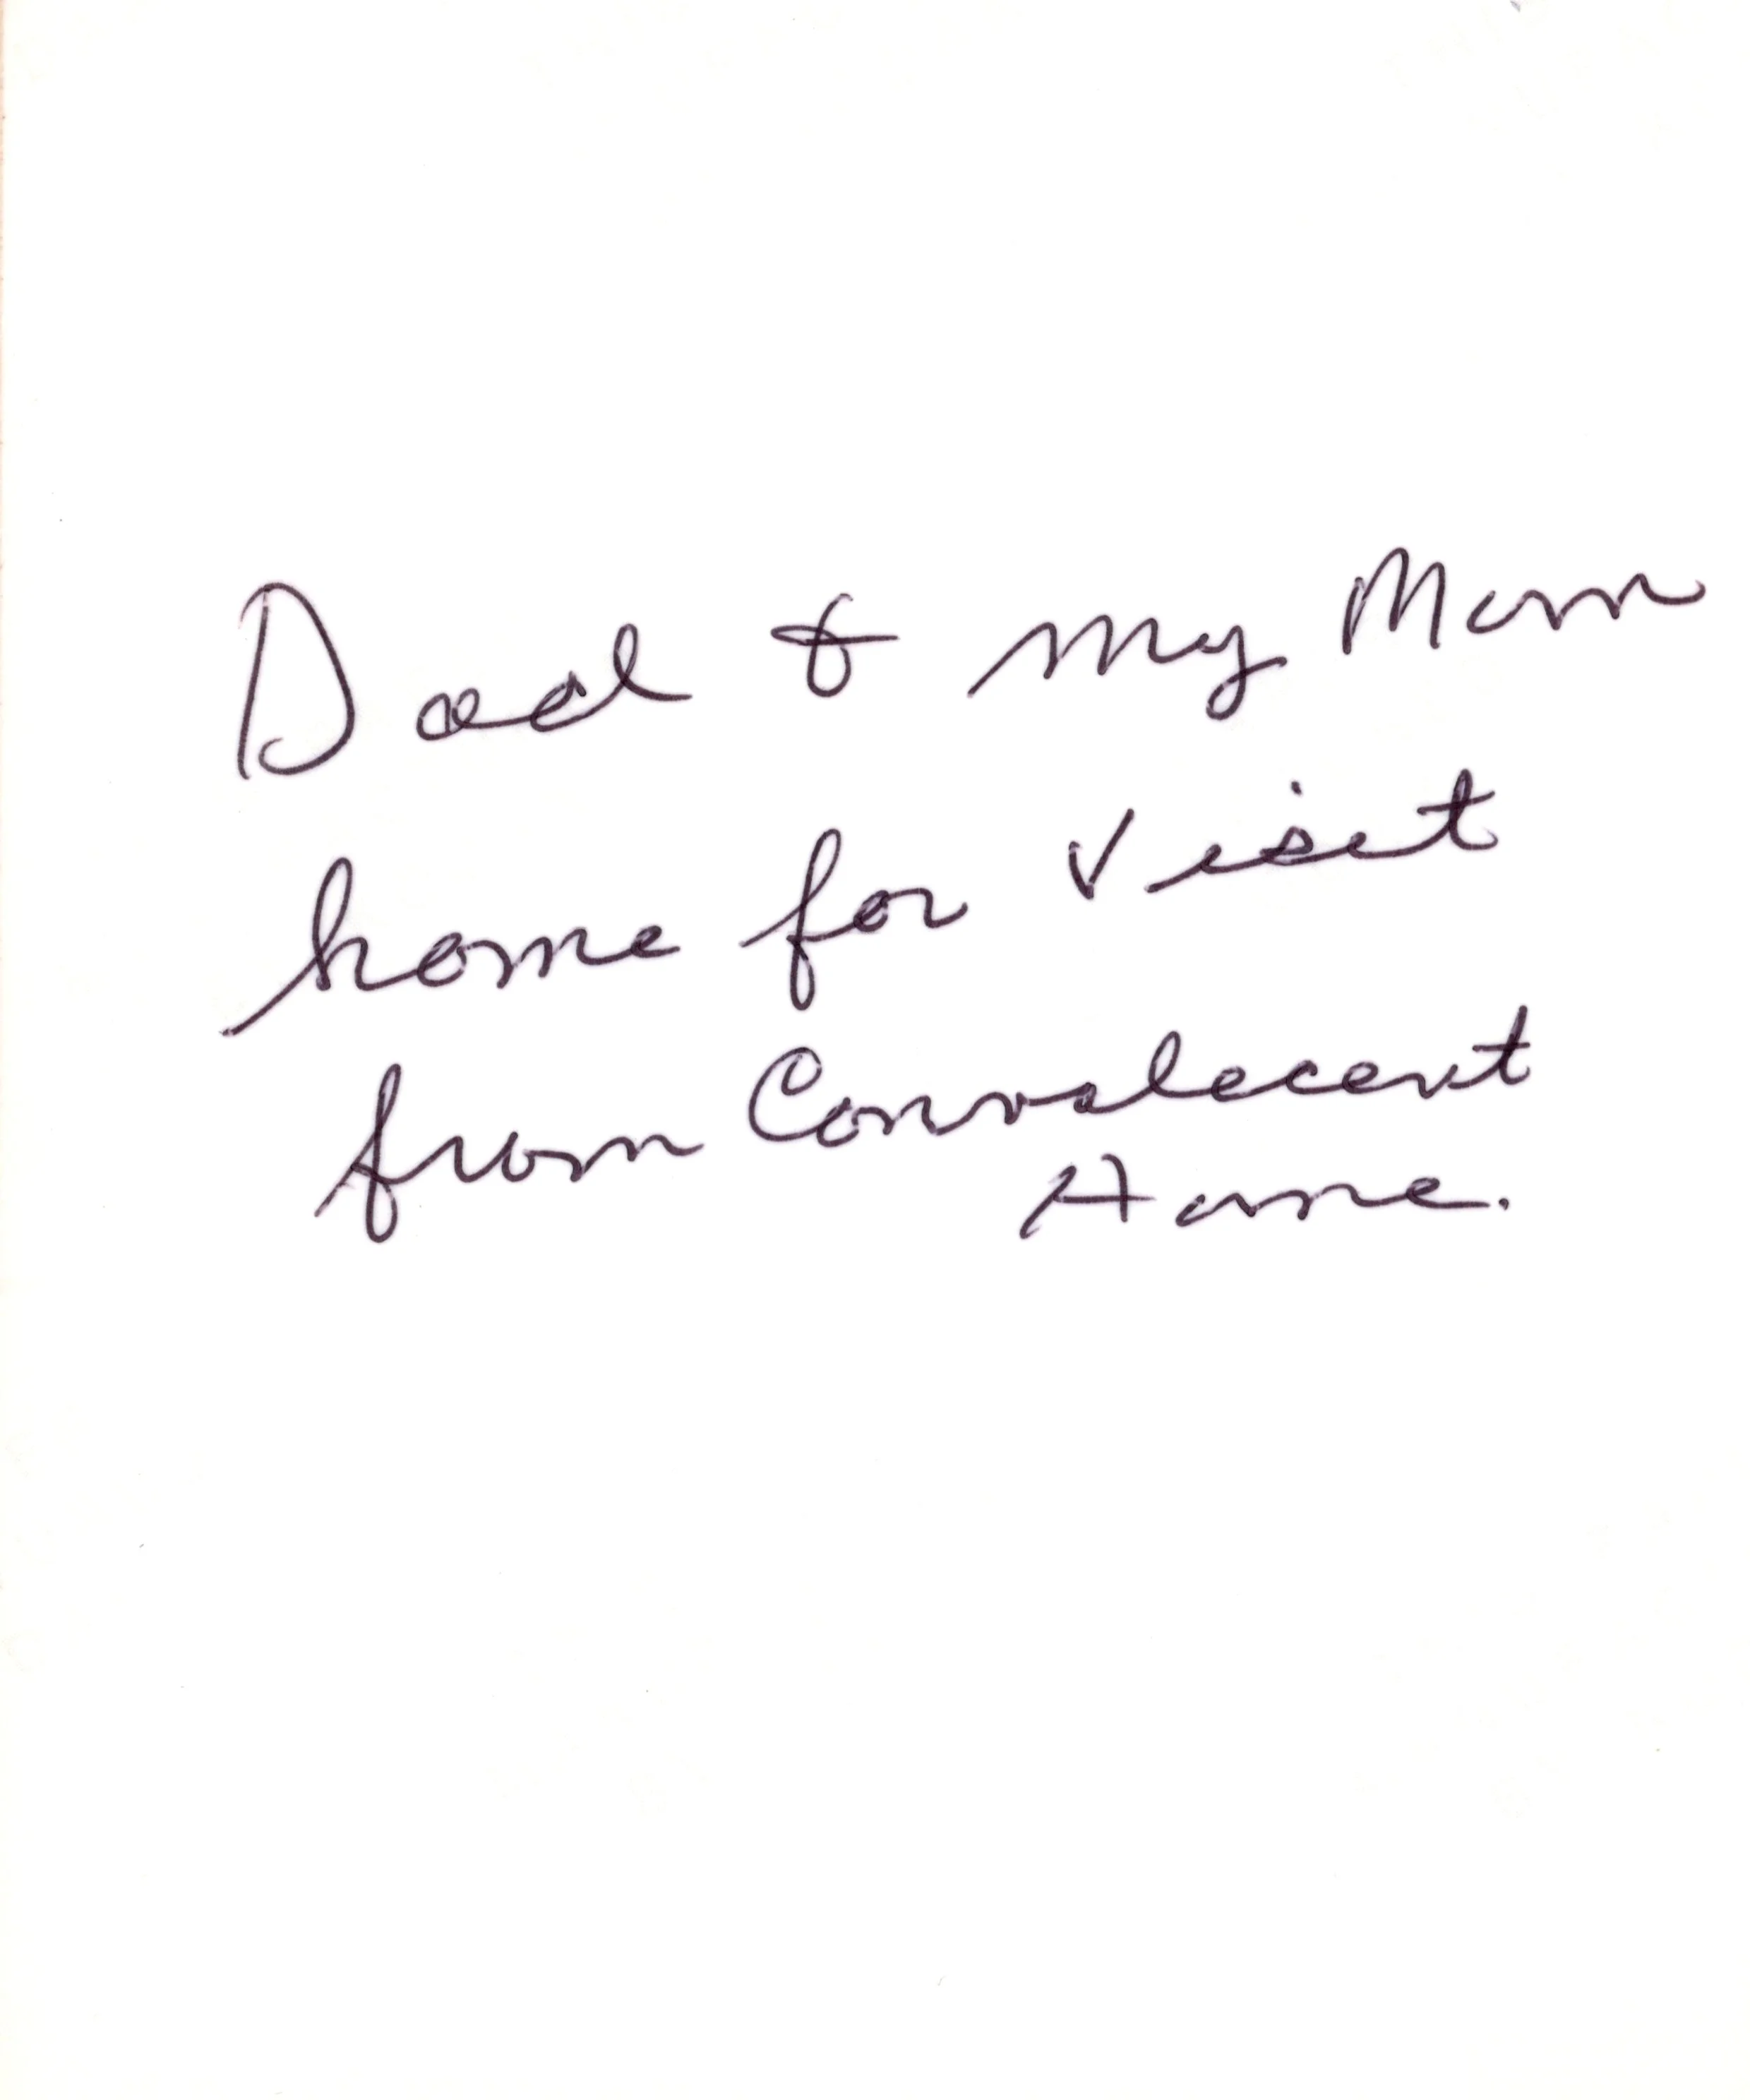 Dad & my Mom
home for visit
from Convalecent
Home.